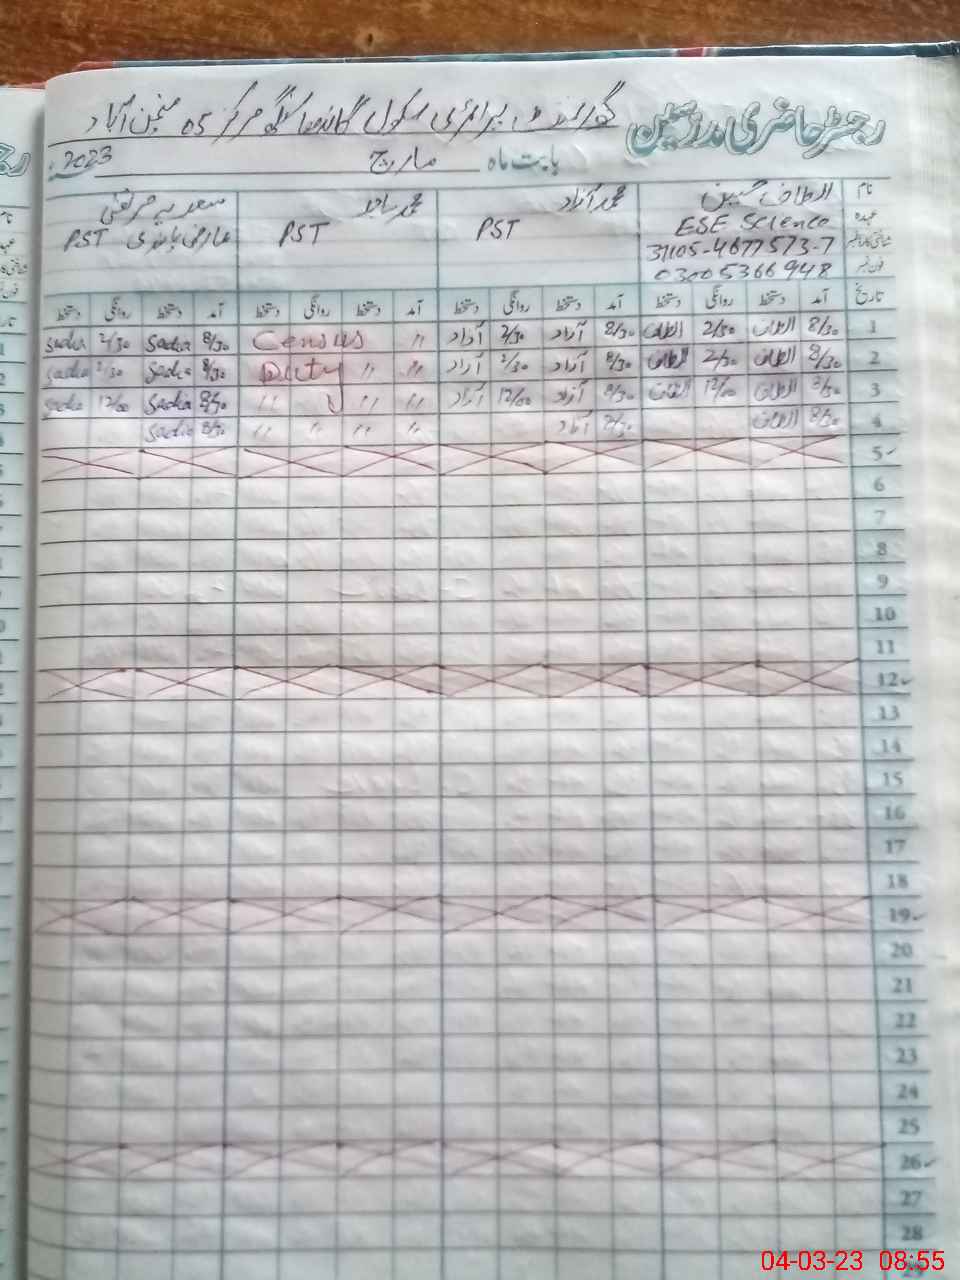 رجسٹر حاضری مدرسین گورنمنٹ پرائمری سکول مرکز 05 منچن آباد
بابت ماہ مارچ 2023
نام الطاف حسین محمد آزاد محمد ساجد سعدیہ مرتضی
عہدہ ESE Science PST PST PST عارضی
شناختی کارڈ نمبر 31105-4677573-7
فون نمبر 03005366948
تاریخ آمد دستخط روانگی دستخط آمد دستخط روانگی دستخط آمد دستخط روانگی دستخط آمد دستخط روانگی دستخط
1 8/30 الطاف 2/30 الطاف 8/30 آزاد 2/30 آزاد " Census 8/30 Sadia 2/30 Sadia
2 8/30 الطاف 2/30 الطاف 8/30 آزاد 2/30 آزاد " " Duty 8/30 Sadia 2/30 Sadia
3 8/30 الطاف 12/00 الطاف 8/30 آزاد 12/00 آزاد " " " 8/30 Sadia 12/00 Sadia
4 8/30 الطاف 8/30 آزاد " " " " 8/30 Sadia
5
6
7
8
9
10
11
12
13
14
15
16
17
18
19
20
21
22
23
24
25
26
27
28
29
04-03-23 08:55